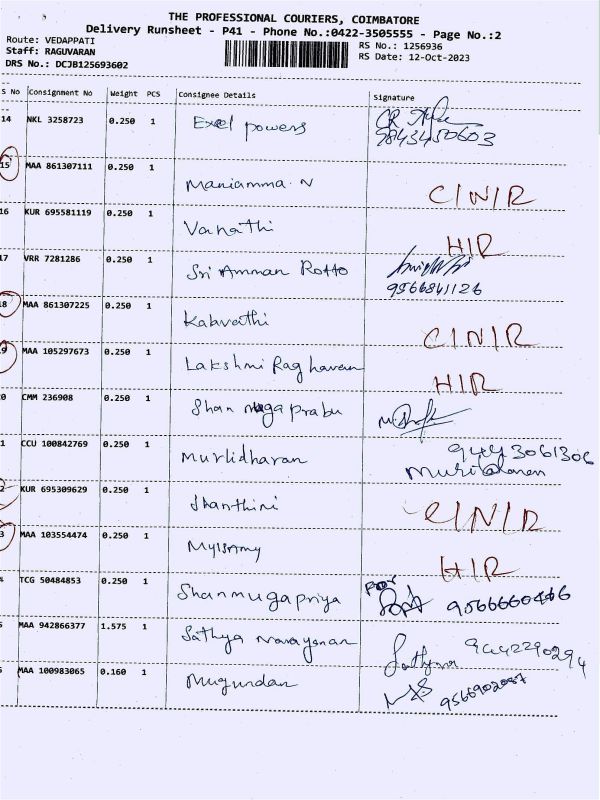 THE PROFESSIONAL COURIERS, COIMBATORE
Delivery Runsheet - P41 - Phone No.:0422-3505555 - Page No.:2
Route: VEDAPPATI
Staff: RAGUVARAN
DRS No.: DCJB125693602
RS No.: 1256936
RS Date: 12-Oct-2023
S No Consignment No Weight PCS Consignee Details Signature
14 NKL 3258723 0.250 1 Excel powers
9843450603
15 MAA 861307111 0.250 1 Maniamma. N C/N/R
16 KUR 695581119 0.250 1 Vanathi H/R
17 VRR 7281286 0.250 1 Sri Amman Rotto
9566841126
18 MAA 861307225 0.250 1 C/N/R
9 MAA 105297673 0.250 1 Lakshmi Raghavan H/R
0 CMM 236908 0.250 1 Shanmugaprabu
1 CCU 100842769 0.250 1 Murlidharan 9443061306
Muridharan
2 KUR 695309629 0.250 1 Shanthini C/N/R
3 MAA 103554474 0.250 1 Mylsamy H/R
4 TCG 50484853 0.250 1 Shanmugapriya 9566660466
5 MAA 942866377 1.575 1 Sathya Narayanan Sathya 9442290294
5 MAA 100983065 0.160 1 Mugundan